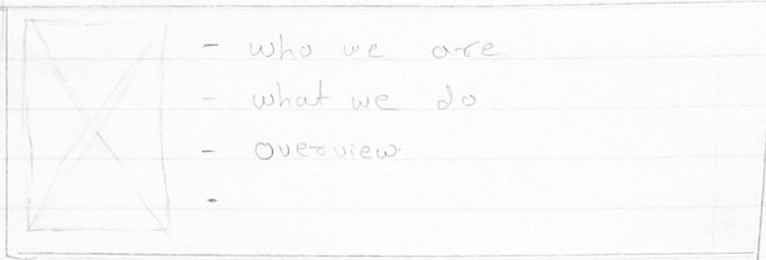 - who we are
- what we do
- overview
-